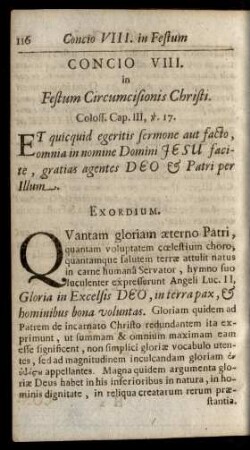 116 Concio VIII. in Festum
CONCIO VIII.
in
Festum Circumcisionis Christi.
Coloss. Cap. III, ℣. 17.
ET quicquid egeritis sermone aut facto,
omnia in nomine Domini JESU faci-
te, gratias agentes DEO & Patri per
Illum.
EXORDIUM.
QVantam gloriam æterno Patri,
quantam voluptatem cœlestium choro,
quantamque salutem terræ attulit natus
in carne humanâ Servator, hymno suo
luculenter expresserunt Angeli Luc. II,
Gloria in Excelsis DEO, in terra pax, &
hominibus bona voluntas. Gloriam quidem ad
Patrem de incarnato Christo redundantem ita ex-
primunt, ut summam & omnium maximam eam
esse significent, non simplici gloriæ vocabulo uten-
tes, sed ad magnitudinem inculcandam gloriam ἐν
appellantes. Magna quidem argumenta glo-
riæ Deus habet in his inferioribus in natura, in ho-
minis dignitate, in reliqua creatarum rerum præ-
stantia.